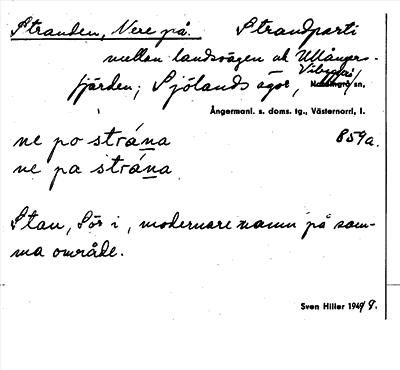 Stranden, Nere på. Strandparti
mellan landsvägen ok Ullångers-
fjärden; Sjölands ägor, Vibyggerå sn.
Ångermanl. s. doms. tg., Västernorrl. l.
ne po strána 859a.
ne pa strána
Stan, Sör i, modernare namn på sam-
ma område.
Sven Hiller 1949.